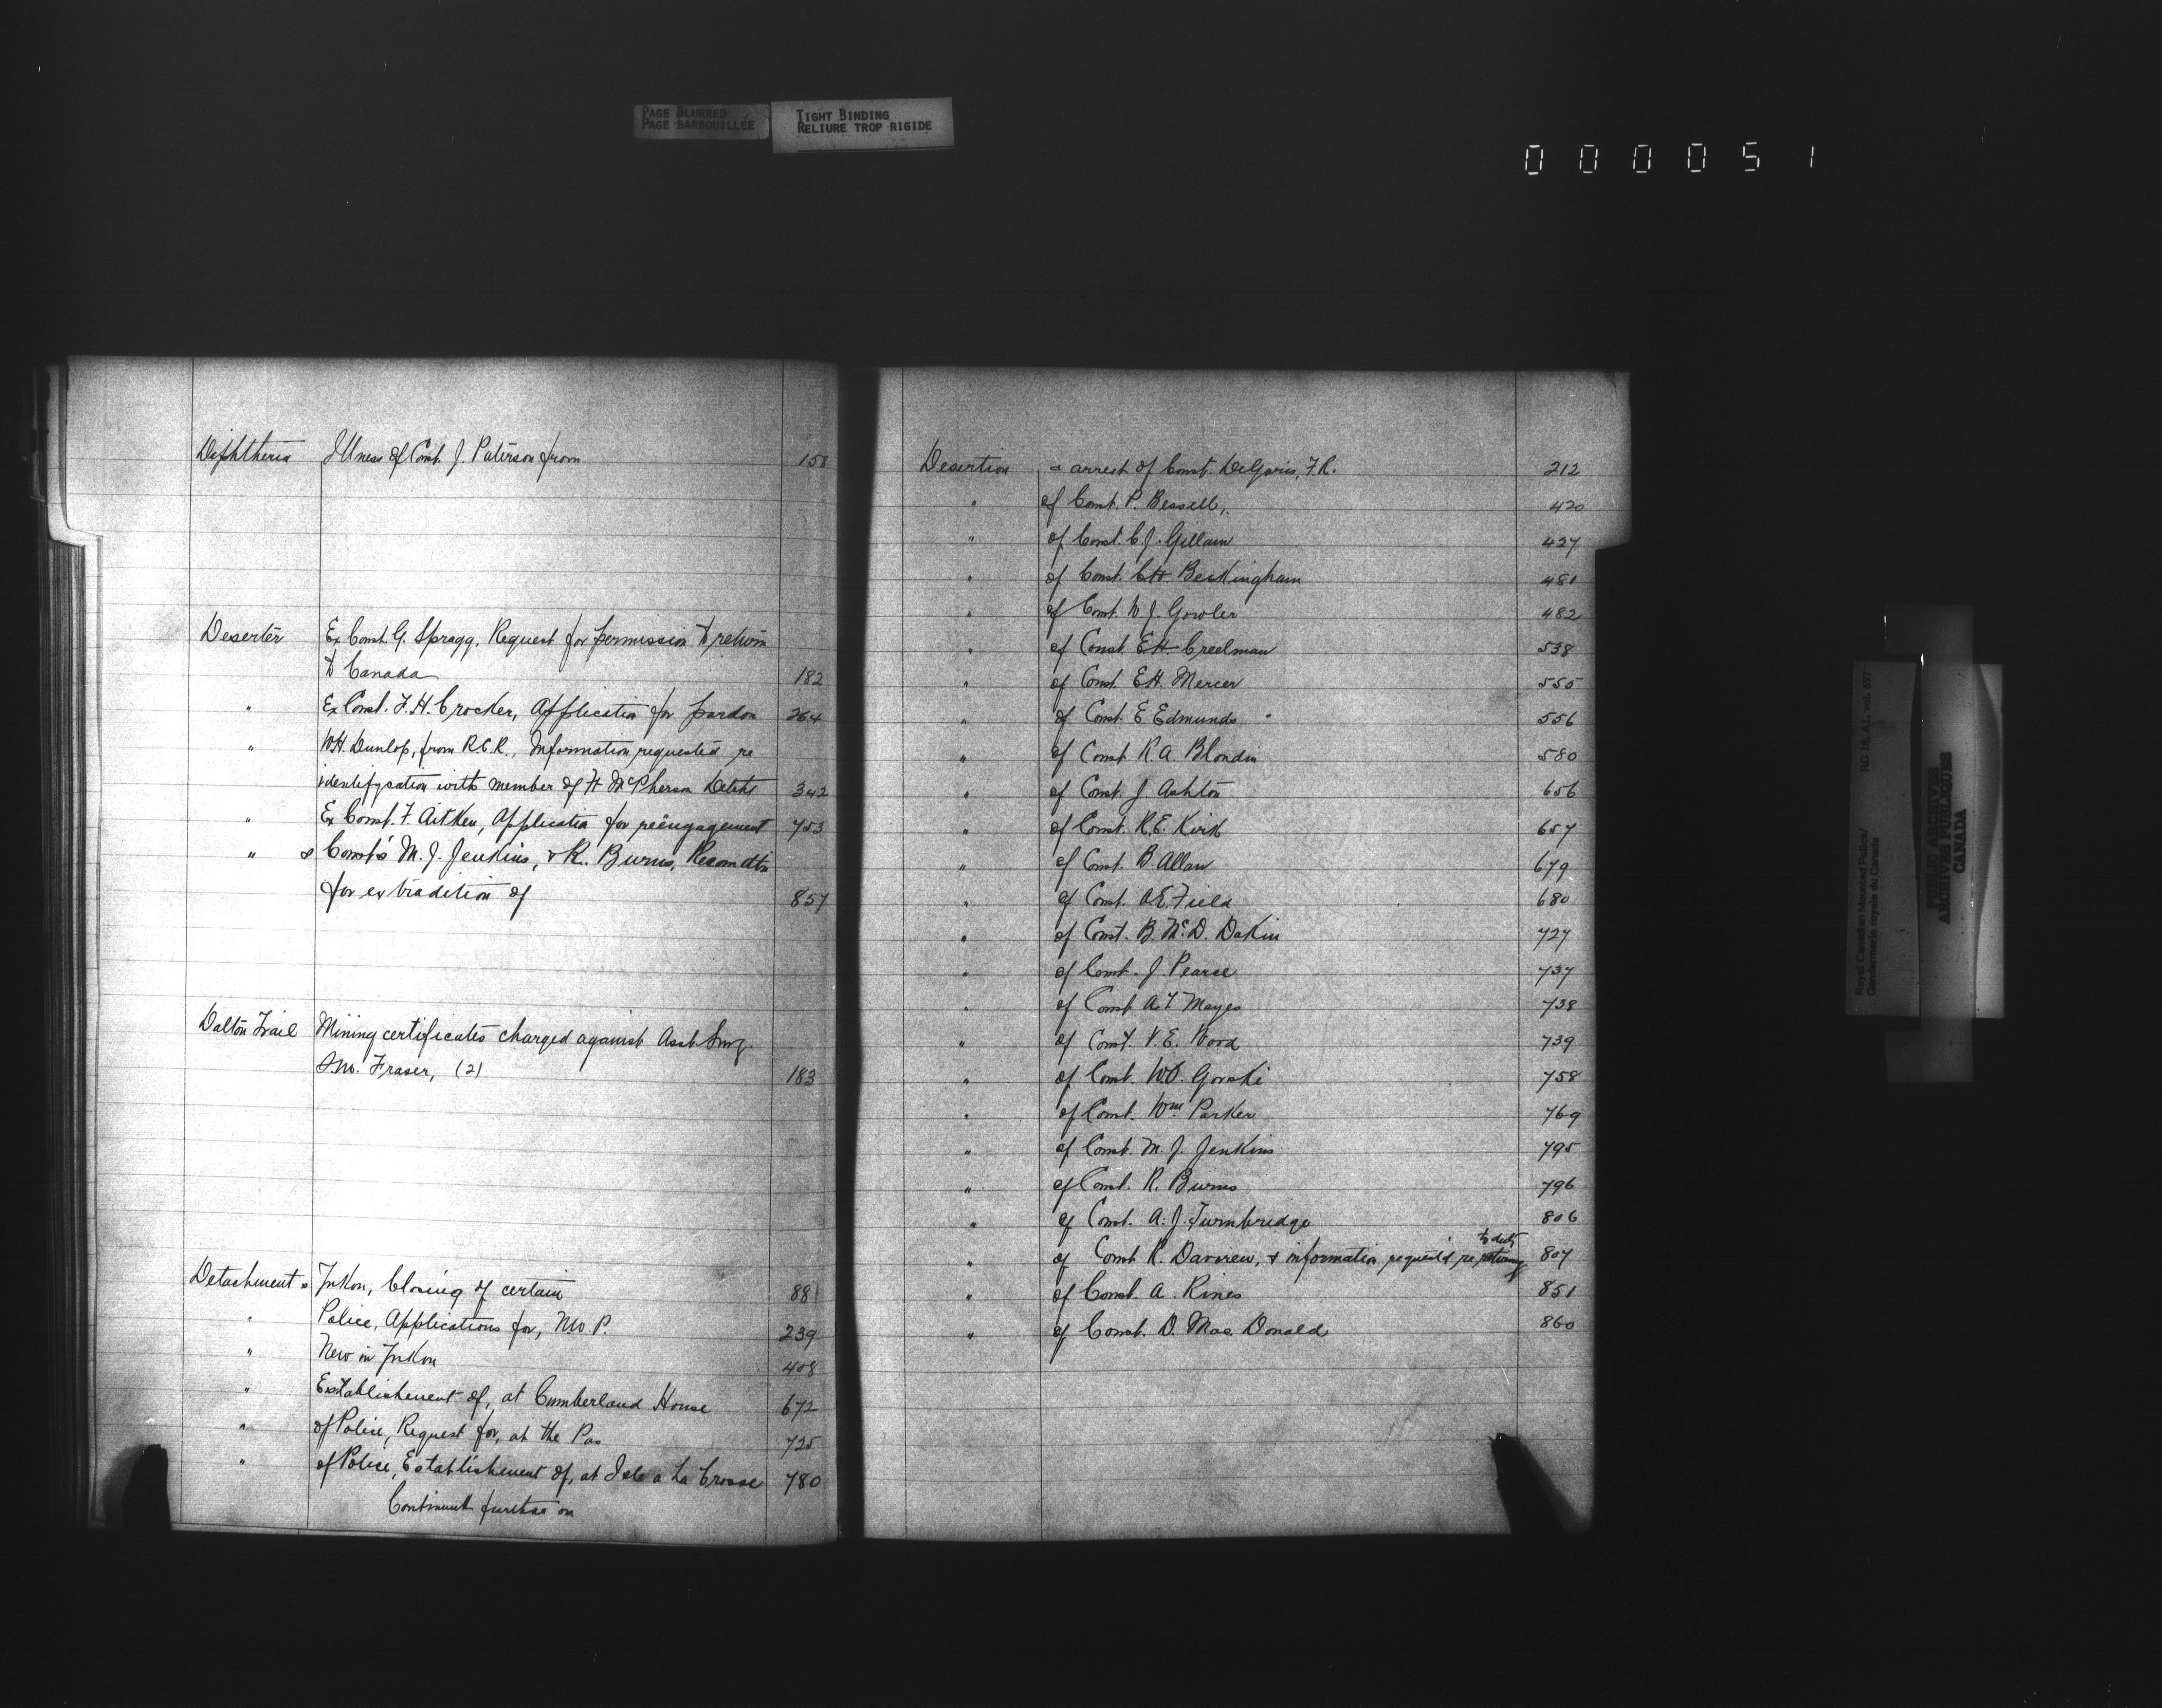 PAGE BLURRED
PAGE BARBOUILLÉE
TIGHT BINDING
RELIURE TROP RIGIDE
000051
Diphtheria Illness of Const. J. Paterson from 158
Deserter Ex Const. G. Spragg, Request for permission to return
to Canada 182
" Ex Const. F. H. Crocker, Application for pardon 264
" W.H. Dunlop, from R.C.R., Information requested re
identifycation with member of Ft McPherson Detcht 342
" Ex Const. F. Aitken, Applicatn for reëngagement 753
" s Const's M. J. Jenkins, & R. Burns, Recomdtn
for extradition of 857
Dalton Trail Mining certificates charged against Asst Surg.
Fraser, (2) 183
Detachments Yukon, Closing of certain 881
" Police, Applications for, NW.P. 239
" New in Yukon 408
" Establishment of, at Cumberland House 672
" of Police, Request for, at the Pas 725
" of Police, Establishment of, at Isle a La Crosse 780
Continued further on
Desertion & arrest of Const. DeGaris, F.R. 212
" of Const. P. Bessell, 420
" of Const. C. J. Gillam 427
" of Const. C.H. Beckingham 481
" of Const. W J. Gowler 482
" of Const. E.H. Creelman 538
" of Const. E.H. Mercer 555
" of Const. E Edmunds 556
" of Const R.A. Blondin 580
" of Const. J Ashton 656
" of Const. R.E. Kirk 657
" of Const. B. Allan 679
" of Const. A.E. Field 680
" of Const. B. McD. Dakin 727
" of Const. J. Pearse 737
" of Const A.T Mayes 738
" of Const. V. E. Wood 739
" of Const. W.O. Gorski 758
" of Const. Wm Parker 769
" of Const. M. J. Jenkins 795
" of Const. R. Burns 796
" of Const. A. J. Turnbridge 806
to duty
" of Const R. Darorew, & information requestd re returning 807
" of Const. A. Rines 851
" of Const. D. Mac Donald 860
Royal Canadian Mounted Police/
Gendarmerie royale du Canada
RG 18, A1, vol. 677
PUBLIC ARCHIVES
ARCHIVES PUBLIQUES
CANADA